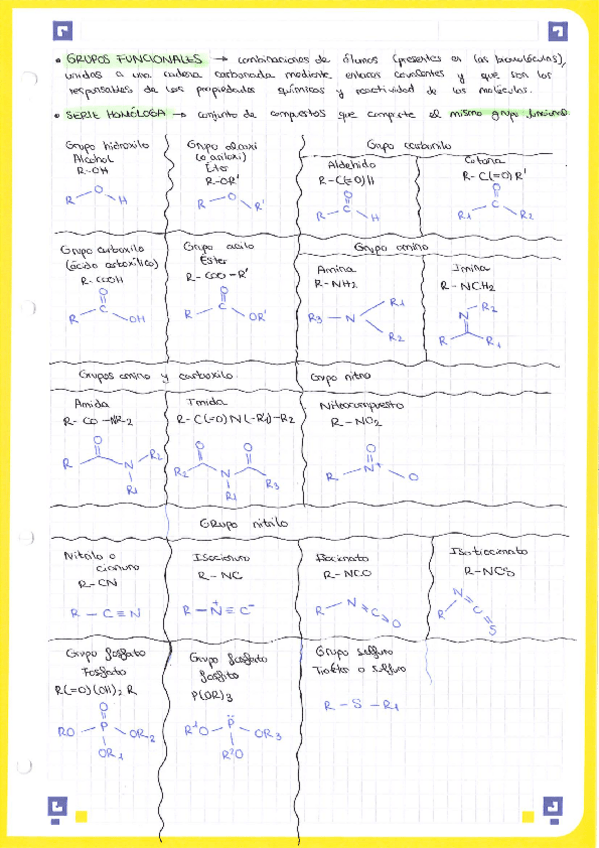 • GRUPOS FUNCIONALES → combinaciones de átomos (presentes en las biomoléculas),
unidos a una cadena carbonada mediante enlaces covalentes y que son los
responsables de las propiedades químicas y reactividad de las moléculas.
• SERIE HOMÓLOGA → conjunto de compuestos que comparte el mismo grupo funcional
Grupo hidroxilo
Alcohol
R-OH
R O H
Grupo alcoxi
(o ariloxi)
Éter
R-OR'
R O R'
Grupo carbonilo
Aldehido
R-C(=O)H
O
R C H
Cetona
R-C(=O)R'
O
R1 C R2
Grupo carboxilo
(ácido carboxílico)
R-COOH
O
R C OH
Grupo acilo
Éster
R-COO-R'
O
R C OR'
Grupo amino
Amina
R-NH2
R3 - N R1
R2
Imina
R-NCH2
N R2
R R1
Grupos amino y carboxilo
Amida
R-CO-NR2
O
R N R2
R1
Imida
R-C(=O)N(-R1)-R2
O O
R2 N R3
R1
Grupo nitro
Nitrocompuesto
R-NO2
O
R N+ O
GRupo nitrilo
Nitrilo o
cianuro
R-CN
R-C≡N
Isocianuro
R-NC
R-N+≡C-
R-NCO
R N=C=O
Isotiocianato
R-NCS
R N=C=S
Grupo fosfato
Fosfato
R(=O)(OH)2 R
O
RO - P - OR2
OR1
Grupo fosfato
fosfito
P(OR)3
R1O - P - OR3
R2O
Grupo sulfuro
Tioéter o sulfuro
R-S-R1